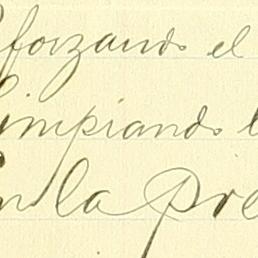 forzando el
Limpiando l
En la pre